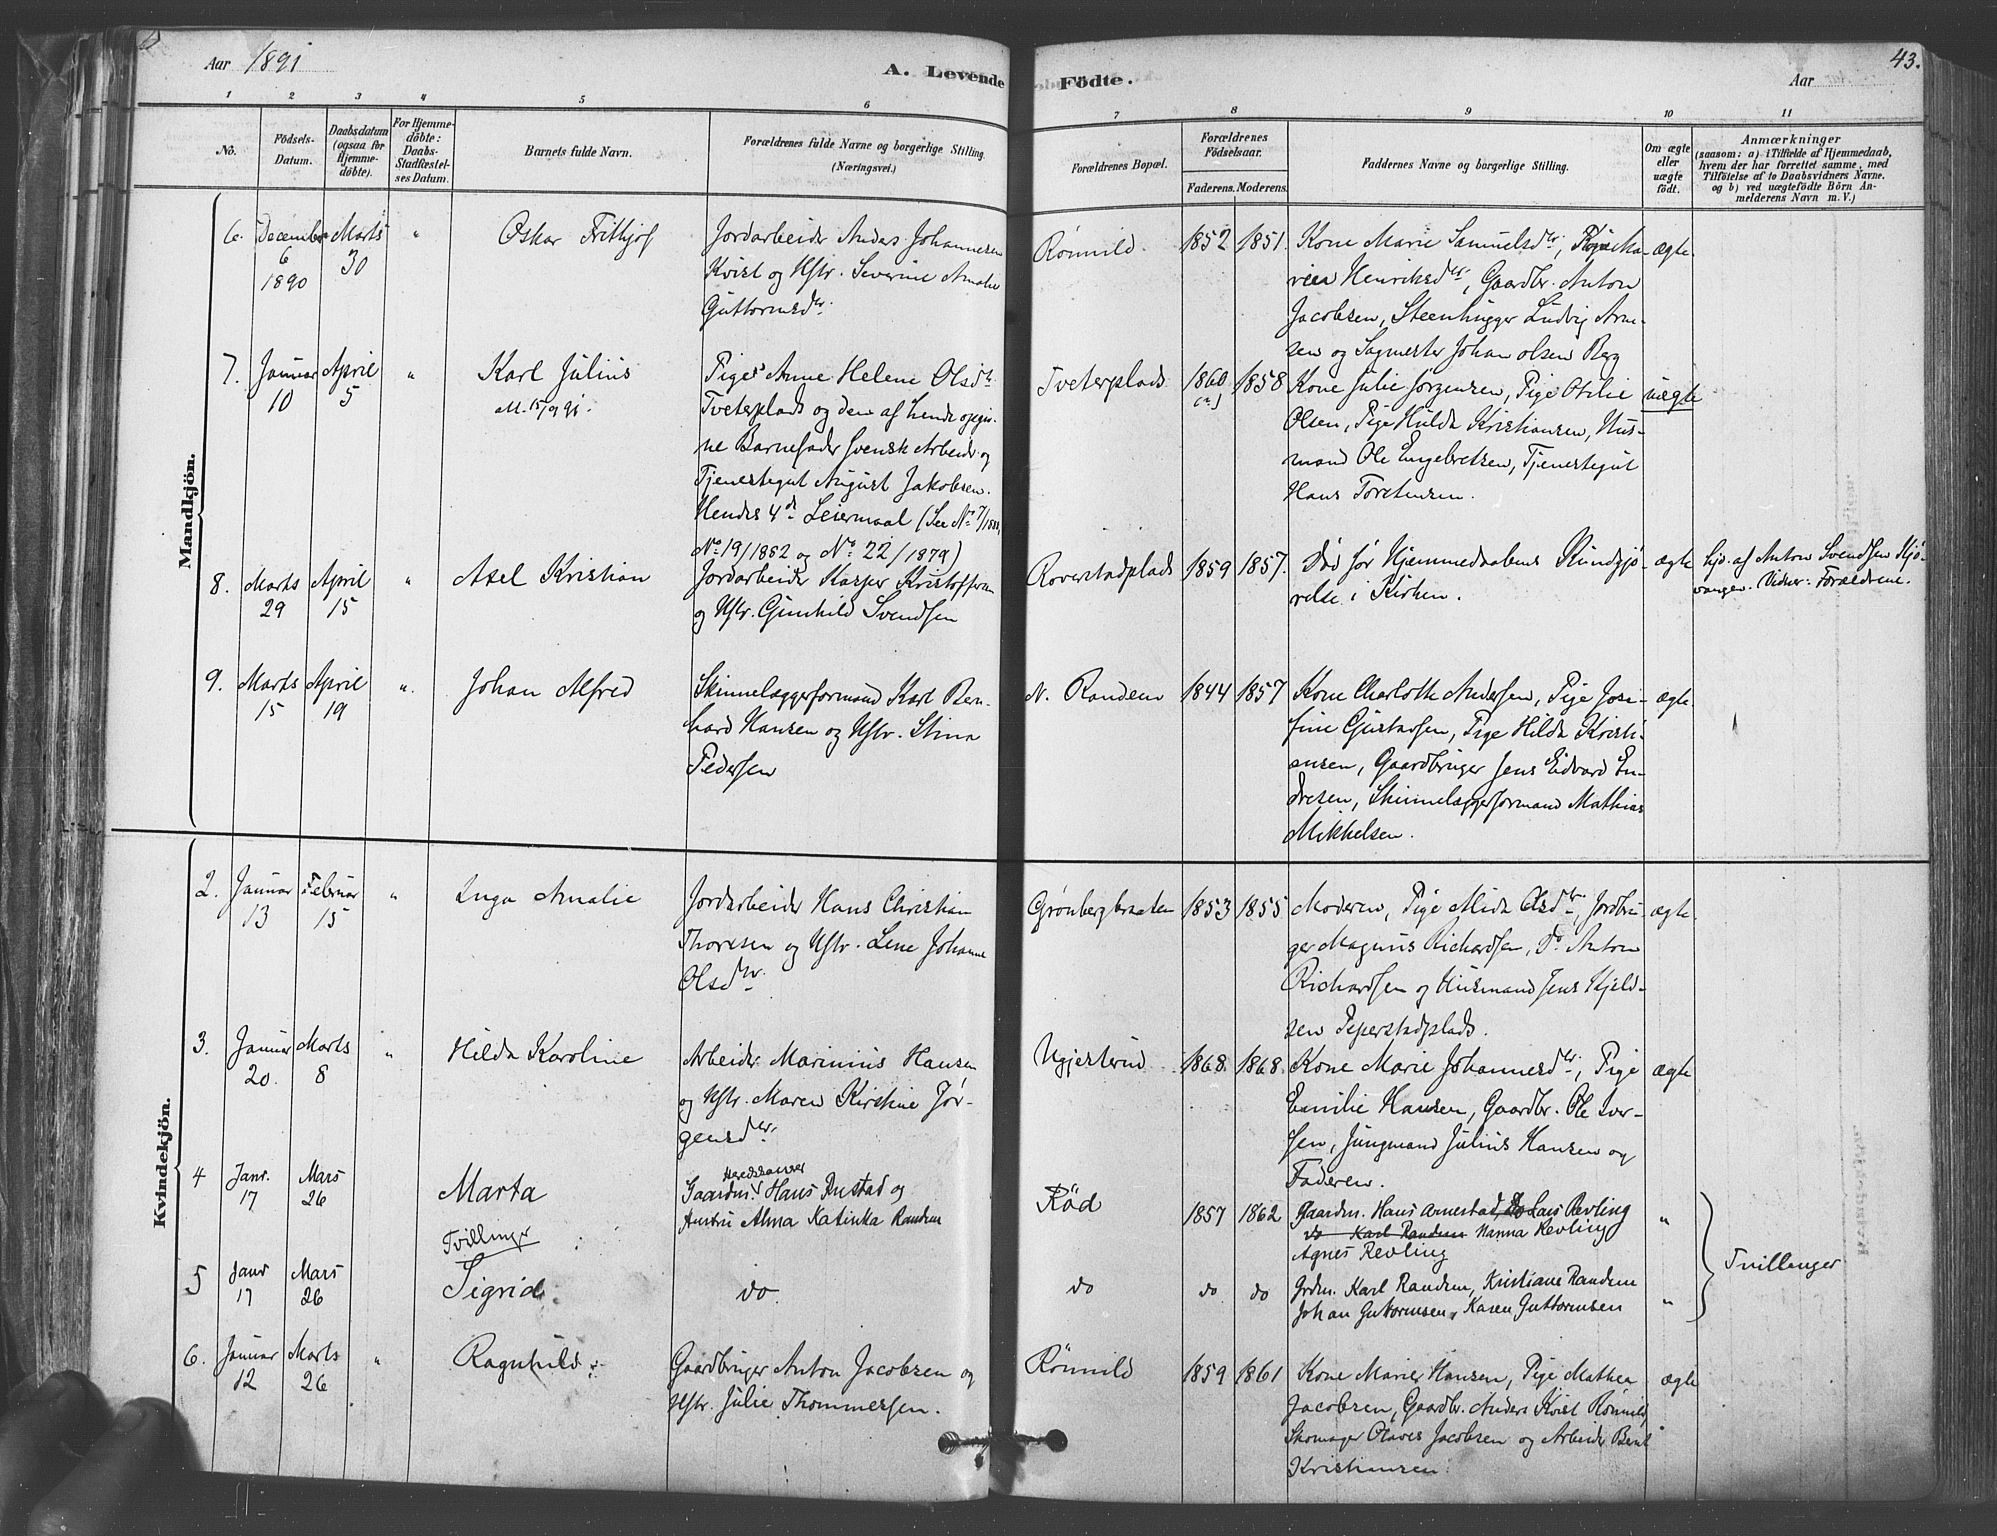 Aar 1891
A. Levende Födte.
Aar
43.
1
2
3
4
5
6
7
8
9
10
11
No.
Födsels-
Datum.
Daabsdatum
(ogsaa for
Hjemme-
döbte).
For Hjemme-
döbte:
Daabs-
Stadfæstel-
ses Datum.
Barnets fulde Navn.
Forældrenes fulde Navne og borgerlige Stilling.
(Næringsvei.)
Forældrenes Bopæl.
Forældrenes
Födselsaar.
Faderens. Moderens.
Faddernes Navne og borgerlige Stilling.
Om ægte
eller
uægte
født.
Anmærkninger
(saasom: a) i Tilfælde af Hjemmedaab,
hvem der har forrettet samme, med
Tilföielse af to Daabsvidners Navne.
og b) ved uægtefödte Börn An-
melderens Navn m. V.)
Mandkjön.
6. December 6 1890
Marts 30
"
Oskar Frithjof
Jordarbeider Anders Johannesen
Kvist og Hstr. Severine Amalie
Guttormsdtr.
Römnild.
1852 1851.
Kone Marie Samuelsdtr, Pige Ma-
Henriksdtr, Gaardbr. Anton
Jacobsen, Steenhugger Ludvig Arne-
sen og Sagmester Johan Olsen Berg
ægte.
7. Januar 10
April 5
"
Karl Julius
Pige Anne Helene Olsdtr.
Tveterplads og den af hende opgiv-
ne Barnefader svensk Arbeider og
Tjenestegut August Jakobsen.
Hendes 4de Leiermaal (See No 7/1888,
No 19/1882 og No 22/1879)
Tveterplads
1860 1858
Kone Julie Jørgensen, Pige Otilie
Olsen, Pige Hulda Kristiansen, Hus-
mand Ole Engebretsen, Tjenestegut
Hans Torstensen.
uægte
8. Marts 29
April 15
"
Axel Kristian
Jordarbeider Kasper Kristoffersen
og Hstr. Gunhild Svendsen
Roverstadplads
1859 1857.
Død før Hjemmedaabens Kundgjø-
relse i Kirken.
ægte
hjd. af Anton Svendsen
Vidner: Forældrene.
9. Marts 15
April 19
"
Johan Alfred
Skinnelæggerformand Karl Bern-
hard Hansen og Hstr. Stina
Pedersen
N. Randem
1844 1857
Kone Charlotte Andersen, Pige Jose-
fine Gustavsen, Pige Hilda Kristi-
ansen, Gaardbruger Jens Edvard En-
dresen, Skinnelæggerformand Mathias
Mikkelsen.
ægte.
Kvindekjön.
2. Januar 13
Februar 15
"
Inga Amalie
Jordarbeider Hans Christian
Thoresen og Hstr. Lene Johanne
Olsdtr.
Grönbergbraaten
1853 1855
Moderen, Pige Mida Olsdtr, Jordbru-
ger Magnus Richardsen, Do Anton
Richardsen og Husmand Jens Kjeld-
sen Peperstadplads.
ægte.
3. Januar 20.
Marts 8
"
Hilda Karoline
Arbeider Marinius Hansen
og Hstr. Maren Kirstine Jör-
gensdtr.
1868. 1868.
Kone Marie Johannesdtr, Pige
Emilie Hansen, Gaardbr. Ole Iver-
sen, Jungmand Julius Hansen og
Faderen.
ægte
4 Janr. 17
Mars 26
Marta
Tvillinger
Gaardm. Hans Anstad og
Hustru Alma Katinka Randem
Röd
1857 1862
Gaardm. Hans Arnestad, do Lars Revling
do Karl Randem Hanna Revling
Agnes Revling
"
5 Janr 17
Mars 26
Sigrid.
do.
do
do do
Grdm. Karl Randem, Kristiane Randem
Johan Guttormsen, Karen Guttormsen
"
Tvillinger
6. Januar 12
Marts 26
"
Ragnhild.
Gaardbruger Anton Jacobsen og
Hstr. Julie Thommesen.
Römnild
1859 1861
Kone Marie Hansen, Pige Mathea
Jacobsen, Gaardbr. Anders Kvist Römnild,
Skomager Olaves Jacobsen og Arbeider Bernt
Kristiansen.
ægte